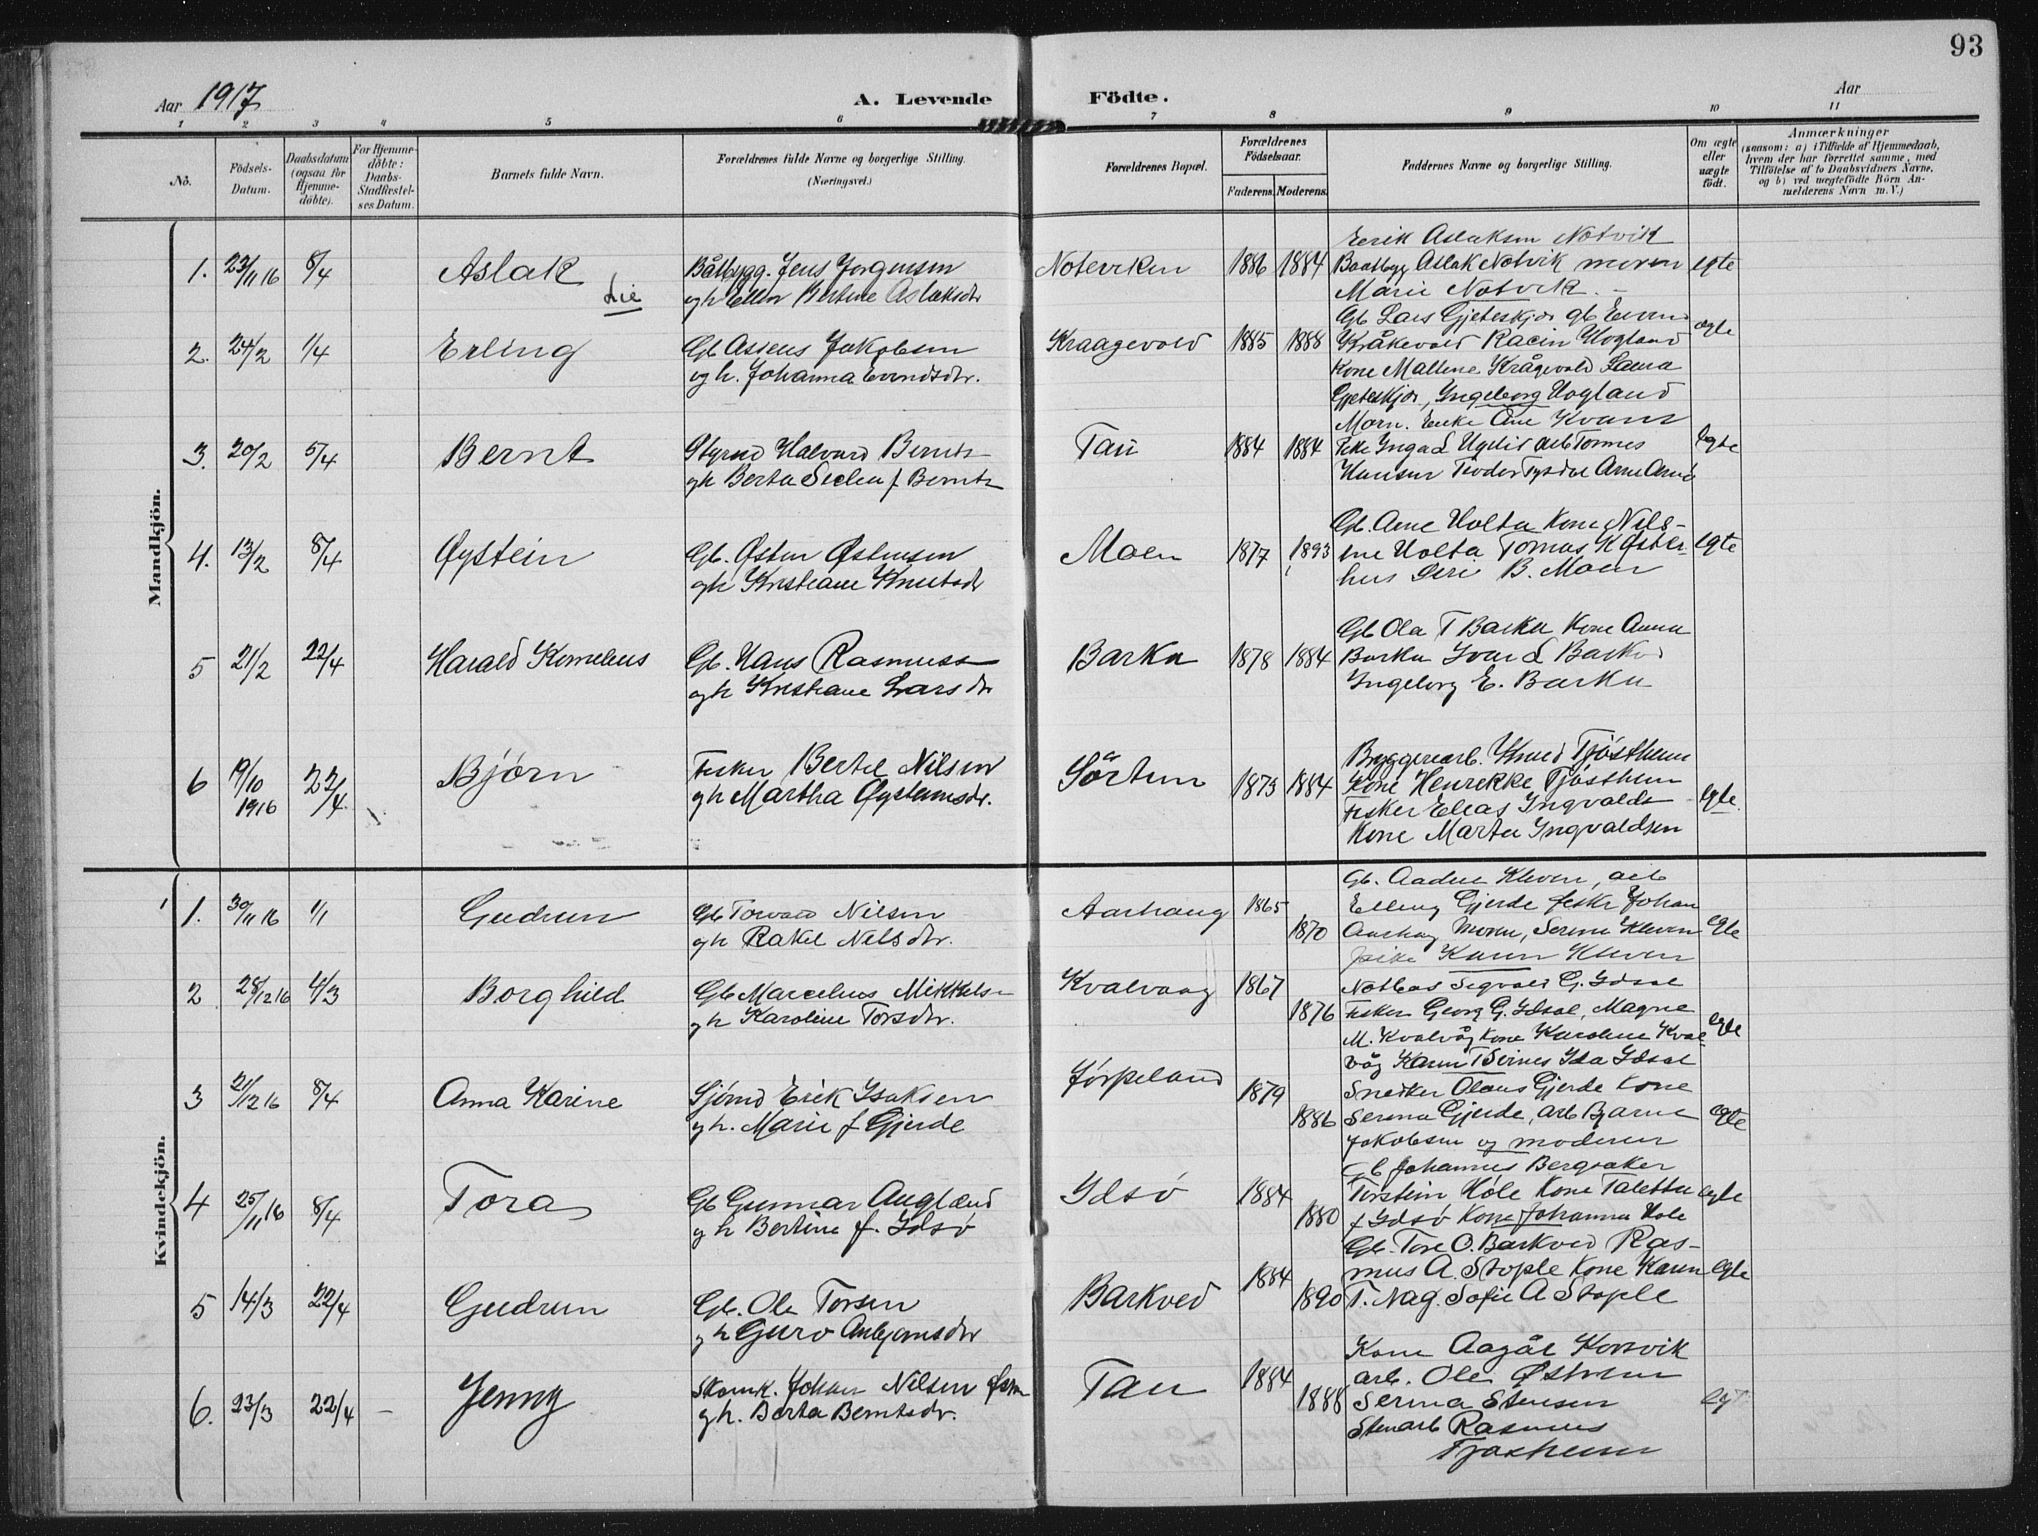 93
Aar 1917 A. Levende Födte. Aar
1 2 3 4 5 6 7 8 9 10 11
No.
Födsels-Datum.
Daabsdatum (ogsaa for Hjemme-döbte).
For Hjemme-döbte: Daabs-Stadfæstel-ses Datum.
Barnets fulde Navn.
Forældrenes fulde Navne og borgerlige Stilling.
(Næringsvei.)
Forældrenes Bopæl.
Forældrenes Födselsaar.
Faderens. Moderens.
Faddernes Navne og borgerlige Stilling.
Om ægte eller uægte födt.
Anmærkninger
(saasom: a) i Tilfælde af Hjemmedaab, hvem der har forrettet samme, med Tilföielse af to Daabsvidners Navne, og b) ved uægtefödte Börn Anmelderens Navn m. V.)
Mandkjön.
1. 23/11 16 8/4 Aslak Lie
Båtbygg. Jens Jorgensen
og h Ellen Bertine Aslaksdtr
Noteviken 1886 1884
Eerik Aslaksen Notvik
Baatbygg Aslak Notvik moren
Marie Notvik. egte
2. 24/2 1/4 Erling
Gb Asseus Jakobsen
og h. Johanna Evendsdtr.
Kraagevold 1885 1888
Gb Lars Gjeteskjær gb Evend
Kråkevold Racin Hogland
Kone Mallene Krågevold Laura
Gjeteskjær, Ingeborg Hogland
ægte
3. 20/2 5/4 Bernt
Styrmd Halvard Bernts
og h Berta Seclea f Berntz
Tau 1884 1884
Morn. Enke Ane Kvam
Frk Inga L Ugelid arb Tonnes
Hansen Teodor Tysdal Arne Arnø
egte
4. 13/2 8/4 Øystein
Gb. Østen Østensen
og h Kristiane Knutsdtr
Moen 1877 1893
Gb. Arne Holta Kone Nils-
ine Holta Tomas K Øster-
hus Siri B. Moen
egte
5 21/2 22/4 Harald Kornelius
Gb. Hans Rasmuss
og h Kristiane Larsdtr
Barka 1878 1884
Gb Ola T Barka Kone Anna
Barka Ivar L Barkved
Ingeborg E. Barka
6 19/10 1916 22/4 Bjørn
Fisker Bertel Nilsen
og h Martha Øysteinsdr.
Sörtun 1873 1884
Byggerarb. Knud Tjøstheim
Kone Henrekke Tjøstheim
Fisker Elias Ingvalds
Kone Marta Ingvaldsen
egte.
Kvindekjön.
1. 30/11 16 1/1 Gudrun
Gb Torvald Nilsen
og h Rakel Nilsdtr.
Aarhaug 1865 1870
Gb. Aadne Kleven, arb
Elling Gjerde fisker Johan
Aarhaug Moren, Serine Kleven
Pike Karen Kleven
egte
2 28/12 16 4/3 Borghild
Gb Marcelius Mikkels-
og h Karoline Torsdtr.
Kvalvaag 1867 1876
Notbas Sigvald G. Idsal
Fisker Georg G. Idsal, Magne
M. Kvalvåg Kone Karoline Kval-
våg Karen T Svines Ida Idsal
egte
3 21/12 16 8/4 Anna Karine
Sjömd Erik Isaksen
og h. Marie f Gjerde
Jørpeland 1879 1886
Snedker Olaus Gjerde Kone
Serena Gjerde, arb Bjarne
Jakobsen og moderen
egte
4 25/11 16 8/4 Tora
Gb Gunnar Augland
og h Bertine f. Idsø
Idsø 1884 1880
Gb Johannes Bergsaker
Torstein Hole Kone Taletta
f Idsø Kone Johanna Hole
egte
5 14/3 22/4 Gudrun
Gb. Ole Torsen
og h Guro Anbjørnsdtr
Barkved 1884 1890
Gb. Tore O. Barkved Ras-
mus A. Stople Kone Karen
T. Nag. Sofie A Stople
egte
6. 23/3 22/4 - Jenny
Skomk. Johan Nilsen
og h. Berta Berntsdr.
Tau 1884 1888
Kone Aagåt Korsvik
arb. Ole Østrem
Serina Stensen
Stenarb Rasmus
Tjøstheim
egt